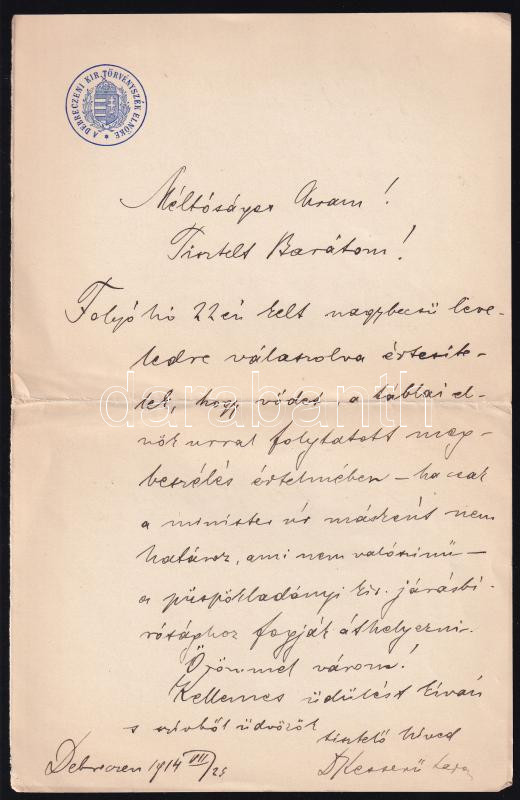 A DEBRECZENI KIR. TÖRVÉNYSZÉK ELNÖKE
Méltóságos Uram!
Tisztelt Barátom!
Folyó hó 22én kelt nagybecsü leve-
ledre válaszolva értesite-
lek, hogy vődet, a táblai el-
nök urral folytatott meg-
beszélés értelmében – ha csak
a minister úr másként nem
határoz, ami nem valószinü –
a püspökladányi kir. járásbi-
rósághoz fogják áthelyezni.
Örömmel várom!
Kellemes üdülést kíván
s szivből üdvözöl
tisztelő hived
Debreczen 1914 VII/25
darabanth